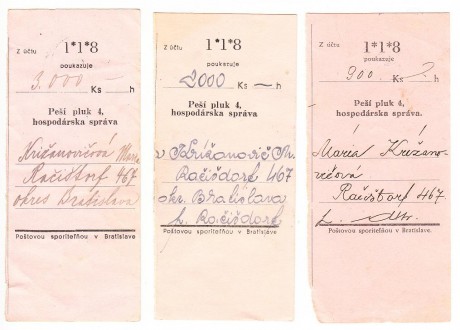 Z účtu 1*1*8
poukazuje
3.000 Ks — h
Peší pluk 4,
hospodárska správa
Križanovičová Mária
Račištorf 467
okres Bratislava
Poštovou sporiteľňou v Bratislave
Z účtu 1*1*8
poukazuje
2000 Ks — h
Peší pluk 4,
hospodárska správa
Križanovič
Račišdorf 467
okr. Bratislava
Račišdorf
Poštovou sporiteľňou v Bratislave
Z účtu 1*1*8
poukazuje
900 Ks h
Peší pluk 4,
hospodárska správa.
Mária Križano-
vičová
Račištorf 467.
Poštovou sporiteľňou v Bratislave.